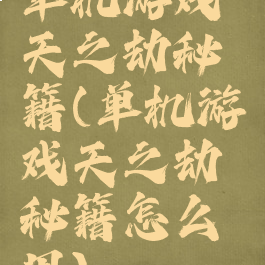 单机游戏
天之劫秘
籍(单机游
戏天之劫
秘籍怎么
用)